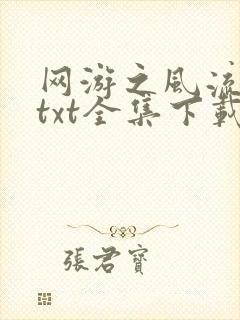 网游之风流
txt全集下载
張君寶